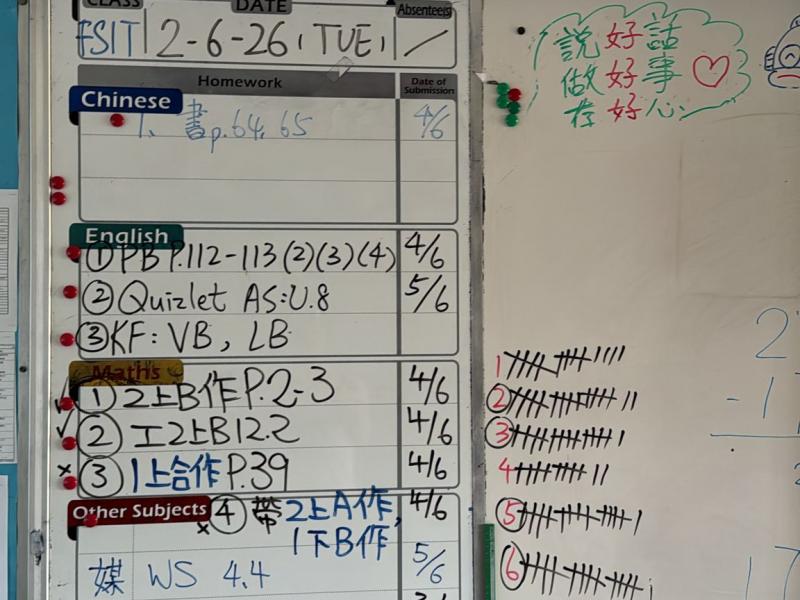 CLASS DATE Absentee(s)
FSIT 2-6-26 (TUE) /
Homework Date of Submission
Chinese
1. 書p.64, 65 4/6
English
① PB P.112-113 (2)(3)(4) 4/6
② Quizlet AS:U.8 5/6
③ KF: VB, LB
Maths
① 2上B作 P.2-3 4/6
② 工2上B12.2 4/6
× ③ 1上合作 P.39 4/6
Other Subjects × ④ 帶 2上A作, 4/6
1下B作
媒 WS 4.4 5/6
說好話
做好事
存好心
1
2
3
4
5
6
2
-1
17